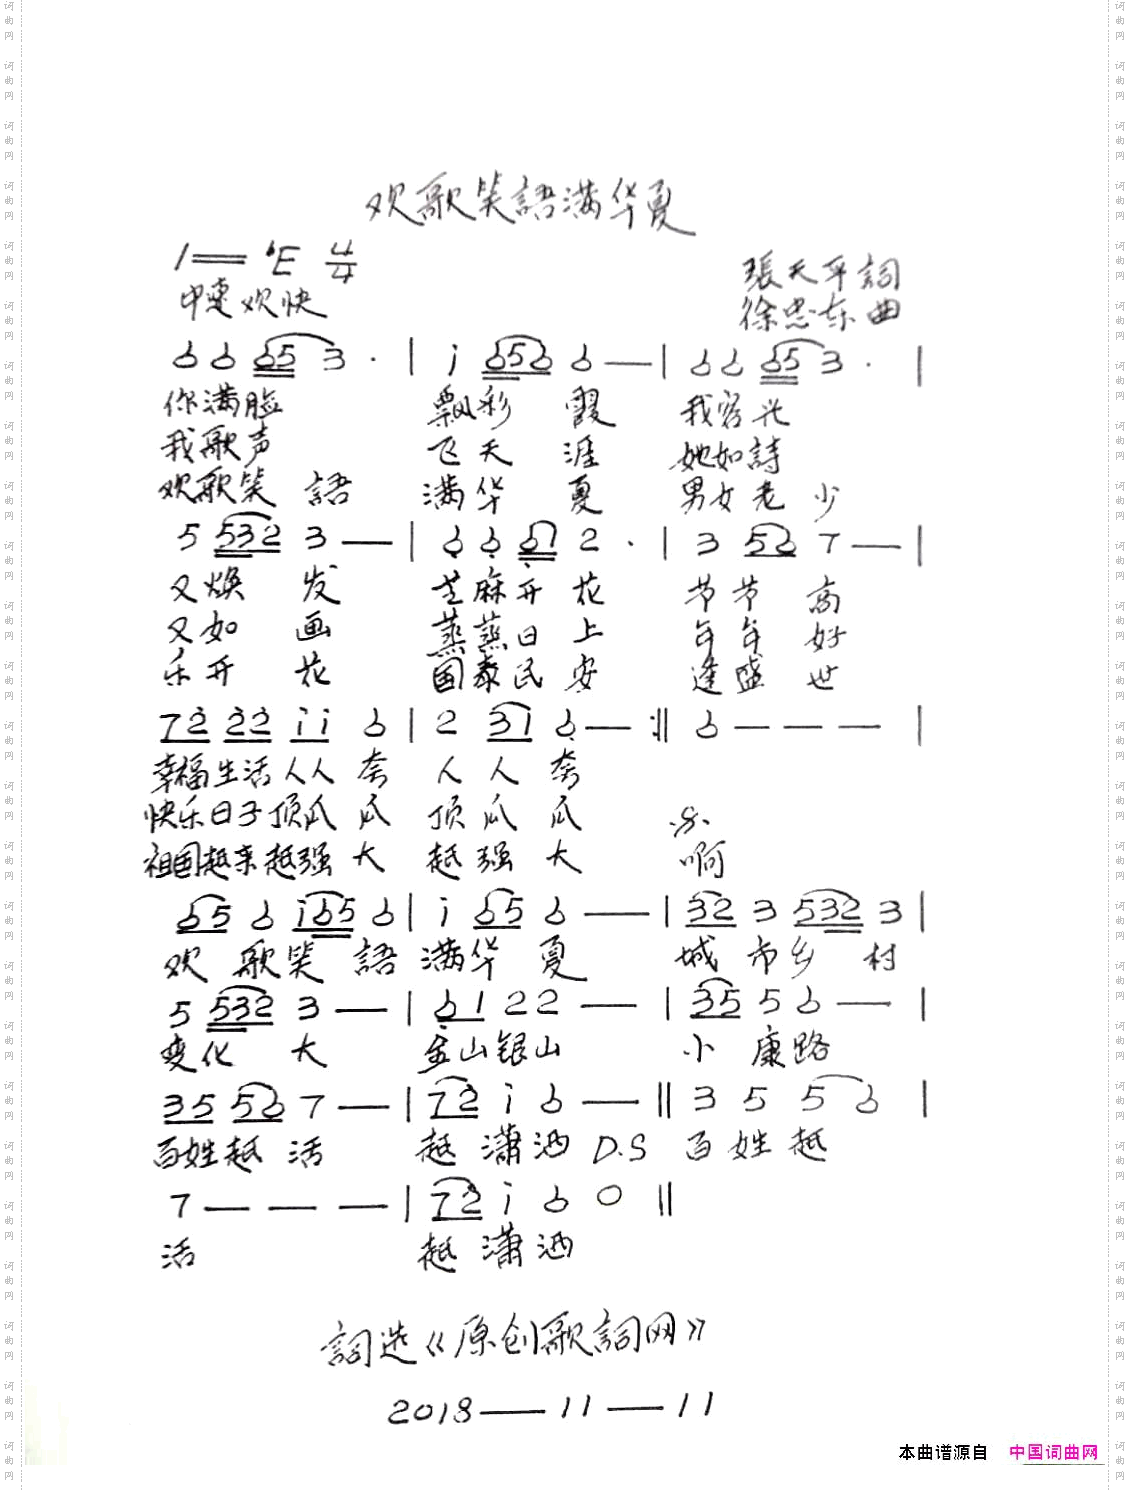 欢歌笑語满华夏
1== ♭E 4/4
張天平詞
中速欢快
徐忠东曲
6 6 65 3 · | i 656 6 — | 6 6 65 3 · |
你满脸 飘彩霞 我容光
我歌声 飞天涯 她如詩
欢歌笑語 满华夏 男女老少
5 532 3 — | 6 6 61 2 · | 3 56 7 — |
又焕发 芝麻开花 节节高
又如画 蒸蒸日上 年年好
乐开花 国泰民安 逢盛世
72 22 ii 6 | 2 31 6 — :‖ 6 — — — |
幸福生活人人夸 人人夸
快乐日子顶瓜瓜 顶瓜瓜
祖国越来越强大 越强大 啊
65 6 i65 6 | i 65 6 — | 32 3 532 3 |
欢歌笑語 满华夏 城市乡村
5 532 3 — | 61 2 2 — | 35 5 6 — |
变化大 金山银山 小康路
35 56 7 — | 72 i 6 — ‖ 3 5 5 6 |
百姓越活 越潇洒 D.S 百姓越
7 — — — | 72 i 6 0 ‖
活 越潇洒
詞选《原创歌詞网》
2018—11—11
本曲谱源自 中国词曲网